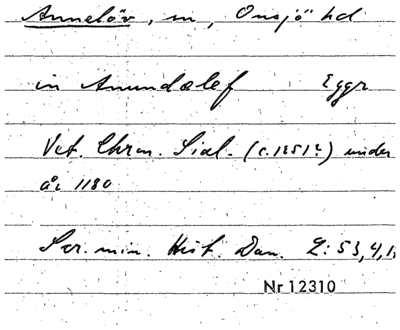 Annelöv, sn, Onsjö hd
in Anundælef Eggr
Vet. Chron. Sial. (c. 1251?) under
år 1180
Scr. min. Hist. Dan. 2:53,4,1
Nr 12310